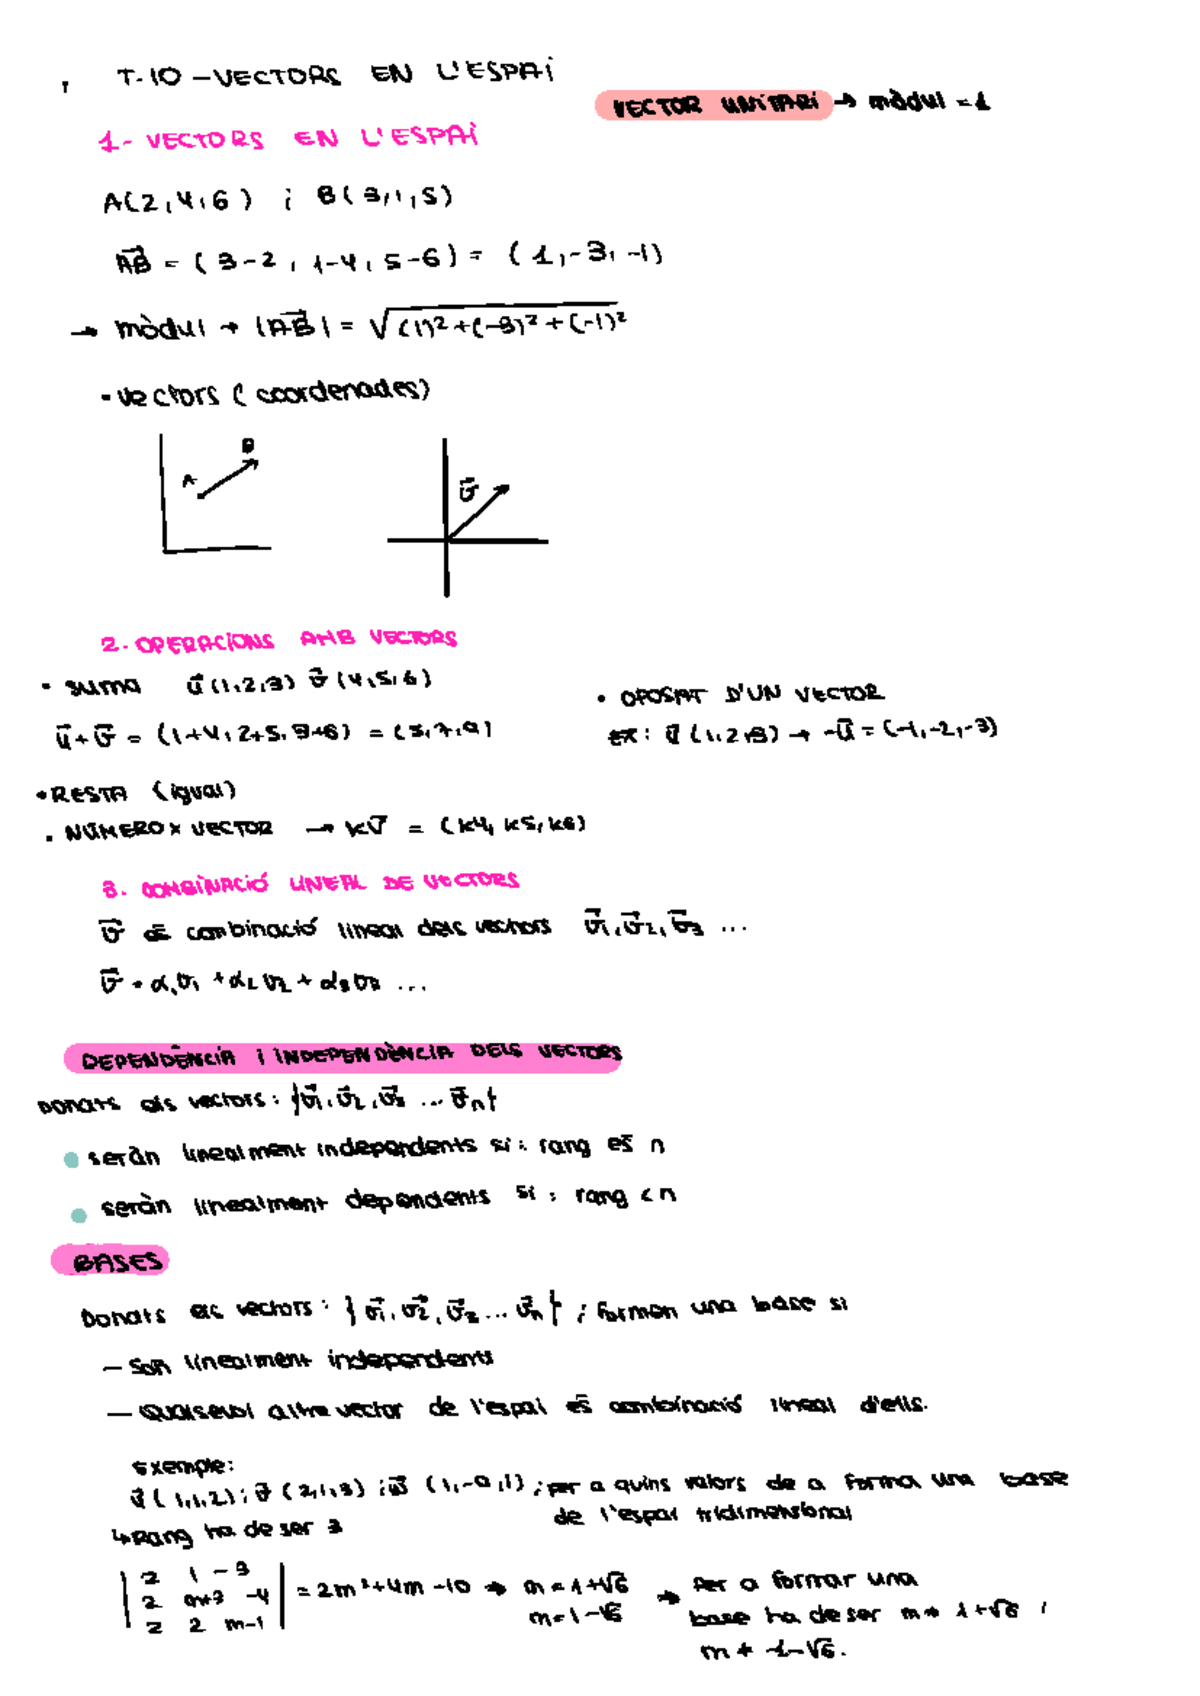 T-10 - VECTORS EN L'ESPAI
VECTOR UNITARI → mòdul = 1
1- VECTORS EN L'ESPAI
A(2,4,6) i B(3,1,5)
AB = (3-2, 1-4, 5-6) = (1,-3,-1)
→ mòdul → |AB| = √(1)²+(-3)²+(-1)²
• vectors (coordenades)
A B
v
2. OPERACIONS AMB VECTORS
• SUMA u(1,2,3) v(4,5,6)
u+v = (1+4, 2+5, 3+6) = (5,7,9)
• OPOSAT D'UN VECTOR
ex: u(1,2,3) → -u = (-1,-2,-3)
• RESTA (igual)
• NÚMERO x VECTOR → kv = (k4, k5, k6)
3. COMBINACIÓ LINEAL DE VECTORS
v és combinació lineal dels vectors v1, v2, v3 ...
v = α1v1 + α2v2 + α3v3 ...
DEPENDÈNCIA I INDEPENDÈNCIA DELS VECTORS
Donats els vectors: {v1, v2, v3 ... vn}
• seràn linealment independents si: rang és n
• seràn linealment dependents si: rang < n
BASES
Donats els vectors: {v1, v2, v3 ... vn} ; formen una base si
— Són linealment independents
— Qualsevol altre vector de l'espai és combinació lineal d'ells.
Exemple:
u(1,1,2); v(2,1,3); w(1,-a,1); per a quins valors de a forma una base
de l'espai tridimensional
↳ Rang ha de ser 3
| 2 1 -3 |
| 2 m+3 -4 | = 2m²+4m-10 → m = 1+√6
| 2 2 m-1 | m = 1-√6
→ Per a formar una
base ha de ser m ≠ 1+√6 i
m ≠ -1-√6.